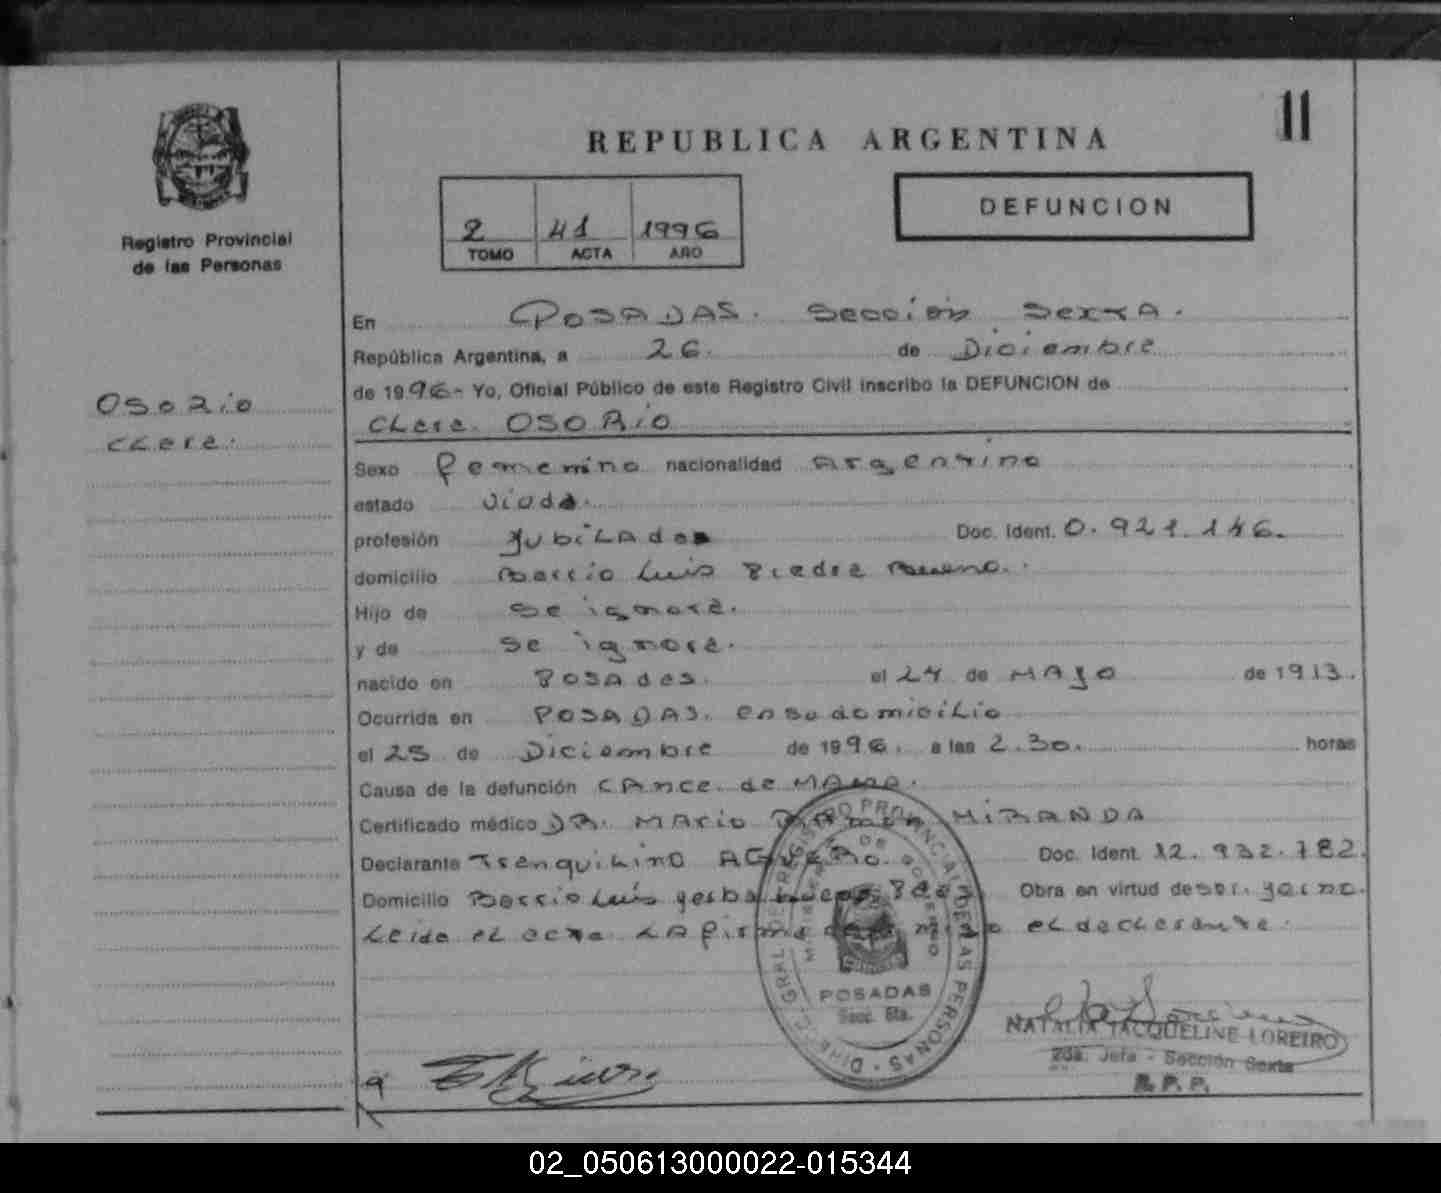 11
REPUBLICA ARGENTINA
DEFUNCION
2 41 1996
TOMO ACTA AÑO
Registro Provincial
de las Personas
OSORIO
CLara.
En POSADAS. Sección Sexta.
República Argentina, a 26. de Diciembre
de 1996- Yo, Oficial Público de este Registro Civil inscribo la DEFUNCION de
CLara. OSORIO
Sexo femenino nacionalidad Argentina
estado Viuda.
profesión Jubilada Doc. Ident. 0.921.146.
domicilio Barrio Luis Piedra Buena.
Hijo de Se ignora.
y de Se ignora.
nacido en Posadas. el 24 de MAyo de 1913.
Ocurrida en POSADAS. en su domicilio
el 25 de Diciembre de 1996. a las 2.30. horas
Causa de la defunción CAnce. de MAma.
Certificado médico DR. Mario Ramon MIRANDA
Declarante Tranquilino AGUERO. Doc. Ident. 12.932.782.
Domicilio Barrio Luis Obra en virtud de ser. yerno.
Leida el acta LA firma el declarante.
DIREC. GRAL. DE REGISTRO PROVINCIAL DE LAS PERSONAS
MINISTERIO DE GOBIERNO
POSADAS
Secc. 6ta.
NATALIA JACQUELINE LOREIRO
2da. Jefa - Sección Sexta
R. P. P.
02_050613000022-015344